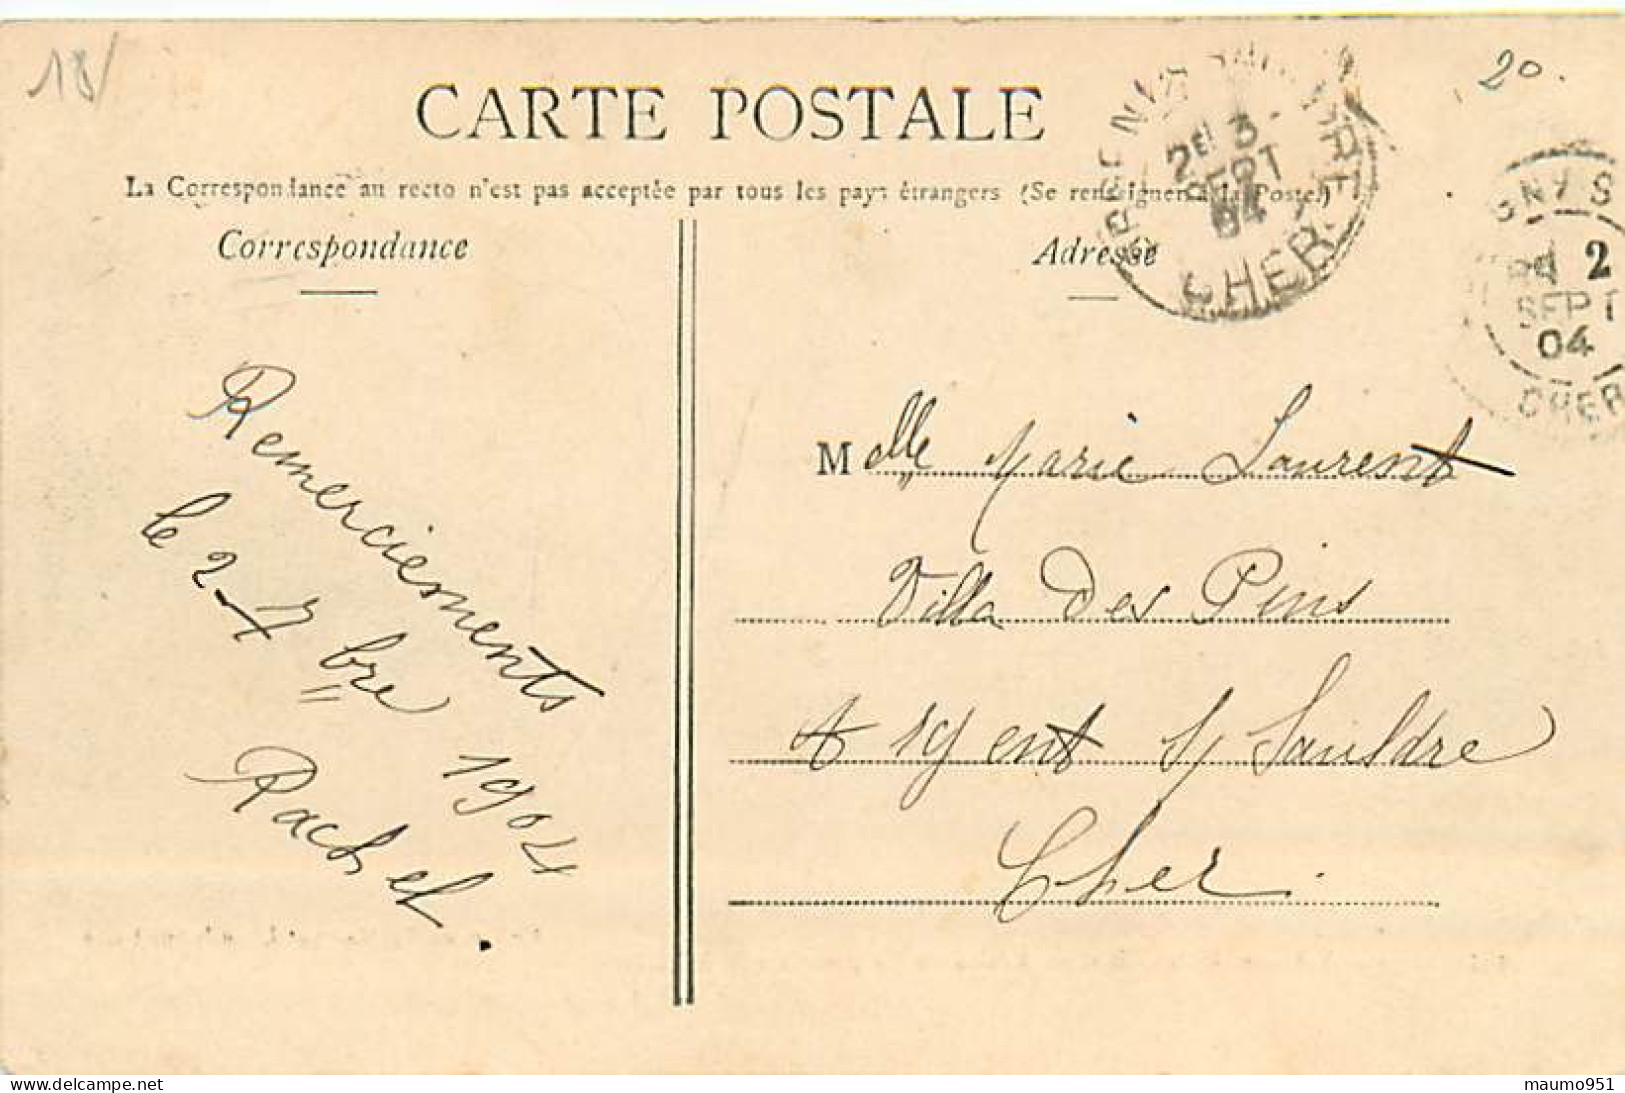 18/
20.
CARTE POSTALE
La Correspondance au recto n'est pas acceptée par tous les pays étrangers (Se renseigner à la Poste)
Correspondance
Adresse
2E 3
SEPT
04
CHER
GNY S
2
SEPT
04
CHER
Remerciements
le 2 7bre 1904
Rachel.
Melle Marie Laurent
Villa Des Pins
Argent s/ Sauldre
Cher.
www.delcampe.net
maumo951